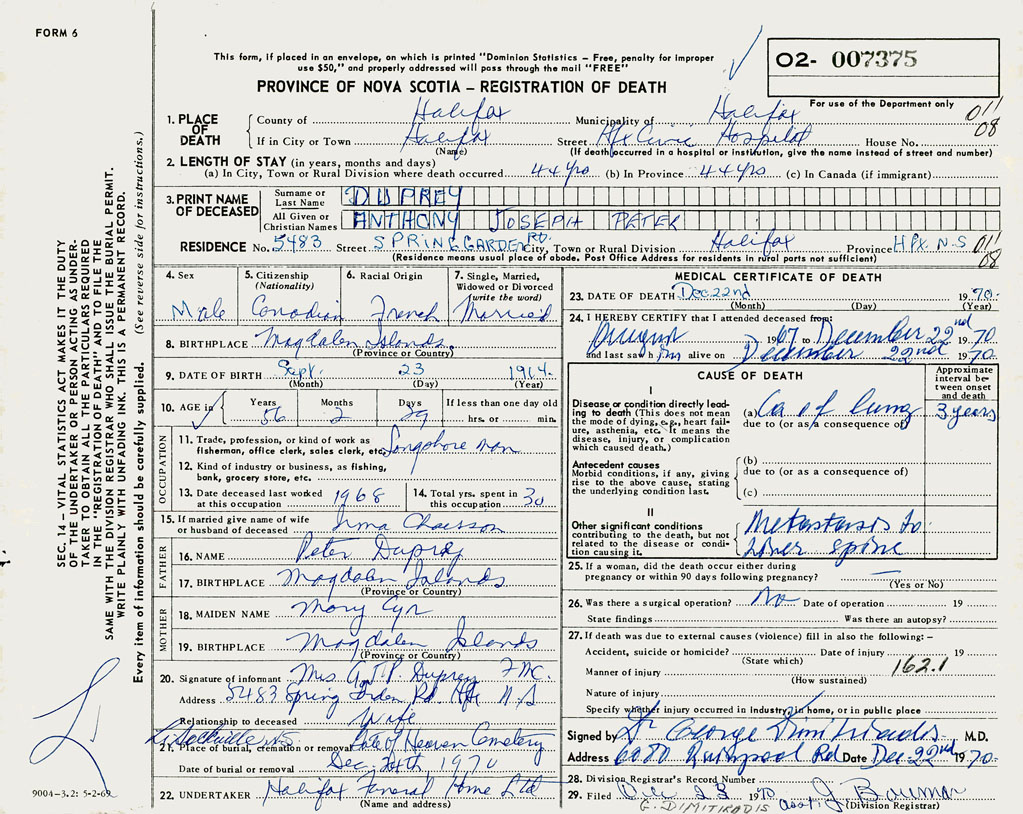 FORM 6
This form, if placed in an envelope, on which is printed "Dominion Statistics – Free, penalty for improper
use $50," and properly addressed will pass through the mail "FREE"
O2- 007375
PROVINCE OF NOVA SCOTIA – REGISTRATION OF DEATH
For use of the Department only
011
08
1. PLACE OF DEATH
County of Halifax Municipality of Halifax
If in City or Town Halifax Street Hfx Civic Hospital House No.
(Name) (If death occurred in a hospital or institution, give the name instead of street and number)
2. LENGTH OF STAY (in years, months and days)
(a) In City, Town or Rural Division where death occurred 44 yrs (b) In Province 44 yrs (c) In Canada (if immigrant)
3. PRINT NAME OF DECEASED
Surname or Last Name DUPREY
All Given or Christian Names ANTHONY JOSEPH PETER
RESIDENCE No. 5483 Street SPRING GARDEN RD. City, Town or Rural Division Halifax Province HFX. N.S 011
08
(Residence means usual place of abode. Post Office Address for residents in rural parts not sufficient)
4. Sex
Male
5. Citizenship (Nationality)
Canadian
6. Racial Origin
French
7. Single, Married, Widowed or Divorced (write the word)
Married
8. BIRTHPLACE Magdalen Islands.
(Province or Country)
9. DATE OF BIRTH Sept. 23 1914.
(Month) (Day) (Year)
10. AGE in Years 56 Months 2 Days 29 If less than one day old hrs. or min.
OCCUPATION
11. Trade, profession, or kind of work as
fisherman, office clerk, sales clerk, etc. Longshore man
12. Kind of industry or business, as fishing,
bank, grocery store, etc.
13. Date deceased last worked at this occupation 1968
14. Total yrs. spent in this occupation 30
15. If married give name of wife
or husband of deceased Irma Chaisson
FATHER
16. NAME Peter Duprey
17. BIRTHPLACE Magdalen Islands
(Province or Country)
MOTHER
18. MAIDEN NAME Mary Cyr
19. BIRTHPLACE Magdalen Islands
(Province or Country)
20. Signature of informant Mrs A.J.P. Duprey
Address 5483 Spring Garden Rd Hfx N.S
Relationship to deceased Wife
21. Place of burial, cremation or removal Gate of Heaven Cemetery
Date of burial or removal Dec. 24th 1970
22. UNDERTAKER Halifax Funeral Home Ltd
(Name and address)
MEDICAL CERTIFICATE OF DEATH
23. DATE OF DEATH Dec. 22nd 1970.
(Month) (Day) (Year)
24. I HEREBY CERTIFY that I attended deceased from:
August 1967 to December 22nd 1970
and last saw him alive on December 22nd 1970.
CAUSE OF DEATH
Approximate interval between onset and death
I
Disease or condition directly leading to death (This does not mean the mode of dying, e.g., heart failure, asthenia, etc. It means the disease, injury, or complication which caused death.)
(a) Ca of lung 3 years
due to (or as a consequence of)
Antecedent causes
Morbid conditions, if any, giving rise to the above cause, stating the underlying condition last.
(b)
due to (or as a consequence of)
(c)
II
Other significant conditions contributing to the death, but not related to the disease or condition causing it.
Metastasis to
Liver spine
25. If a woman, did the death occur either during
pregnancy or within 90 days following pregnancy?
(Yes or No)
26. Was there a surgical operation? No Date of operation 19
State findings Was there an autopsy?
27. If death was due to external causes (violence) fill in also the following: –
Accident, suicide or homicide? Date of injury 19
(State which)
Manner of injury 162.1
(How sustained)
Nature of injury
Specify whether injury occurred in industry, in home, or in public place
Signed by Dr George Dimitriadis M.D.
Address Rd Date Dec 22nd 1970.
28. Division Registrar's Record Number
29. Filed Dec 23 1970
(Division Registrar)
G. DIMITRIADIS
SEC. 14 – VITAL STATISTICS ACT MAKES IT THE DUTY
OF THE UNDERTAKER OR PERSON ACTING AS UNDERTAKER
TO OBTAIN ALL THE PARTICULARS REQUIRED
IN THE "REGISTRATION OF DEATH" AND TO FILE THE
SAME WITH THE DIVISION REGISTRAR WHO SHALL ISSUE THE BURIAL PERMIT.
WRITE PLAINLY WITH UNFADING INK. THIS IS A PERMANENT RECORD.
Every item of information should be carefully supplied. (See reverse side for instructions.)
9004-3.2: 5-2-69